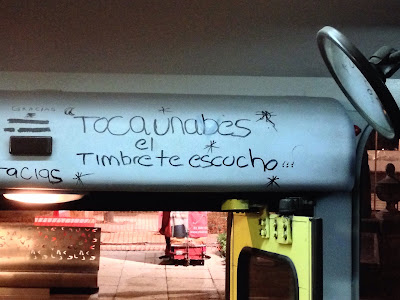 GRACIAS
"TOCA UNA BES
el
TIMBRE TE escucho...